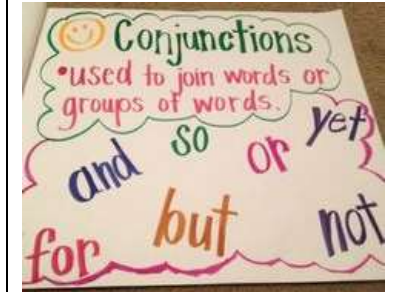 Conjunctions
•used to join words or
groups of words.
and so or yet
for but not